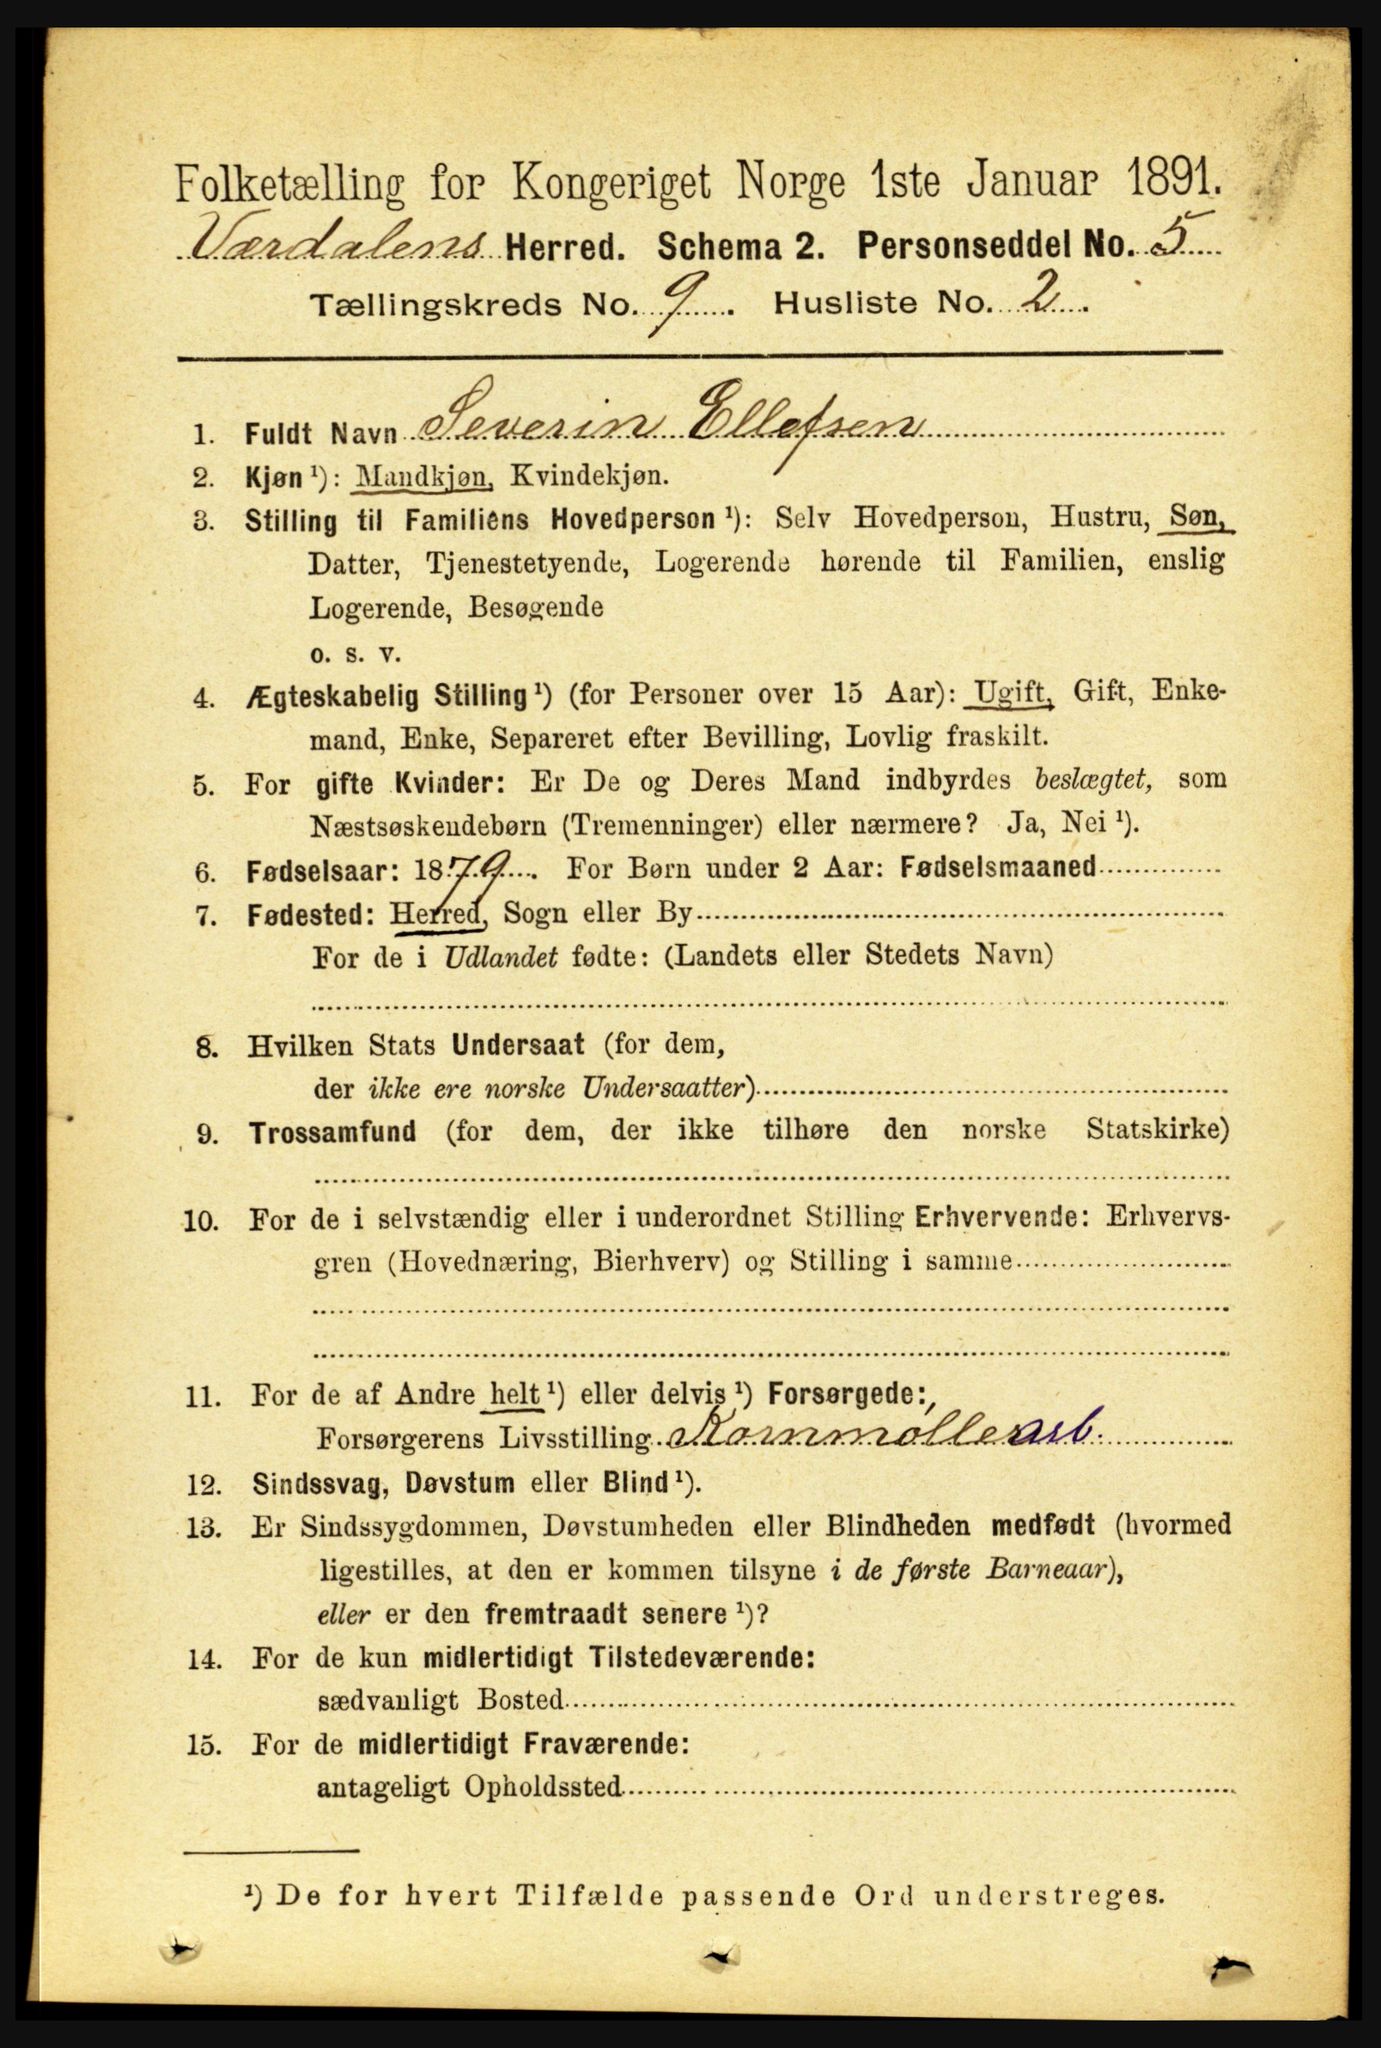 Folketælling for Kongeriget Norge 1ste Januar 1891.
Værdalens Herred. Schema 2. Personseddel No. 5
Tællingskreds No. 9. Husliste No. 2.
1. Fuldt Navn Severin Ellefsen
2. Kjøn ¹): Mandkjøn, Kvindekjøn.
3. Stilling til Familiens Hovedperson ¹): Selv Hovedperson, Hustru, Søn,
Datter, Tjenestetyende, Logerende hørende til Familien, enslig
Logerende, Besøgende
o. s. v.
4. Ægteskabelig Stilling ¹) (for Personer over 15 Aar): Ugift, Gift, Enke-
mand, Enke, Separeret efter Bevilling, Lovlig fraskilt.
5. For gifte Kvinder: Er De og Deres Mand indbyrdes beslægtet, som
Næstsøskendebørn (Tremenninger) eller nærmere? Ja, Nei ¹).
6. Fødselsaar: 1879. For Børn under 2 Aar: Fødselsmaaned
7. Fødested: Herred, Sogn eller By
For de i Udlandet fødte: (Landets eller Stedets Navn)
8. Hvilken Stats Undersaat (for dem,
der ikke ere norske Undersaatter)
9. Trossamfund (for dem, der ikke tilhøre den norske Statskirke)
10. For de i selvstændig eller i underordnet Stilling Erhvervende: Erhvervs-
gren (Hovednæring, Bierhverv) og Stilling i samme
11. For de af Andre helt ¹) eller delvis ¹) Forsørgede:
Forsørgerens Livsstilling Kornmøllearb.
12. Sindssvag, Døvstum eller Blind ¹).
13. Er Sindssygdommen, Døvstumheden eller Blindheden medfødt (hvormed
ligestilles, at den er kommen tilsyne i de første Barneaar),
eller er den fremtraadt senere ¹)?
14. For de kun midlertidigt Tilstedeværende:
sædvanligt Bosted
15. For de midlertidigt Fraværende:
antageligt Opholdssted
¹) De for hvert Tilfælde passende Ord understreges.